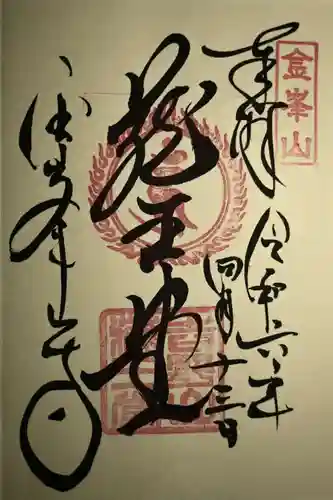 金峯山
奉拜
令和六年
四月十三日
龍王堂
金峯山寺